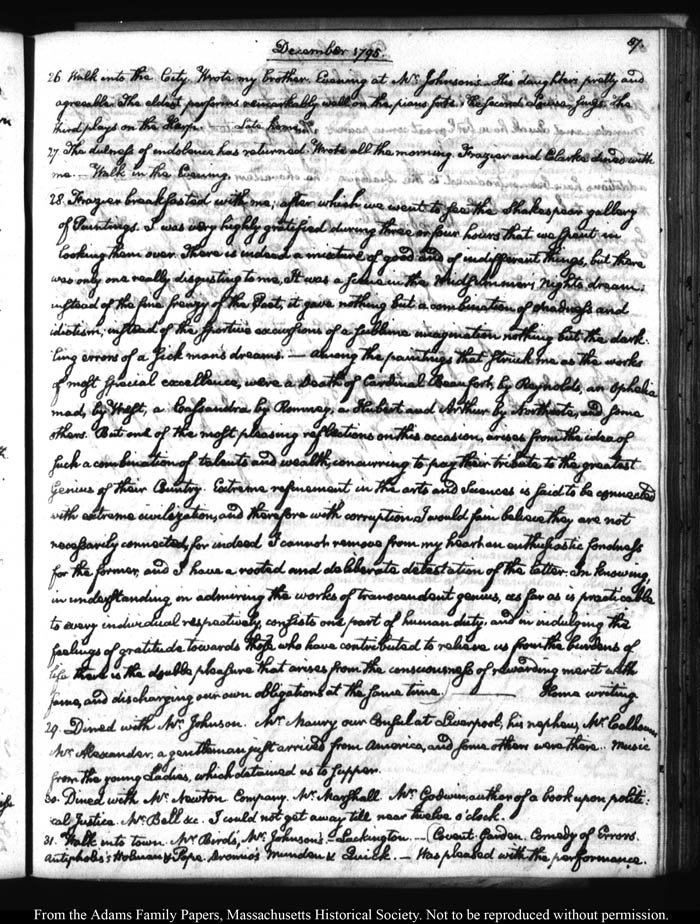 December 1795.
87.
26 Walk into the City. Wrote my brother. Evening at Mr. Johnson's. His daughters pretty and
agreeable. The eldest performs remarkably well on the piano forte. The Second, Louisa, Sings. The
third plays on the Harp. Late home
27 The dulness of indolence has returned. Wrote all the morning. Frazier and Clarke dined with
me. — Walk in the Evening.
28. Frazier breakfasted with me; after which we went to see the Shakespear gallery
of Paintings. I was very highly gratified during three or four hours that we spent in
looking them over. There is indeed a mixture of good and of indifferent things, but there
was only one really disgusting to me. It was a Scene in the Midsummer Nights dream;
instead of the fine frenzy of the Poet, it gave nothing but a combination of madness and
idiotism; instead of the sportive excursions of a sublime imagination nothing but the dark-
ling errors of a sick man's dreams. — Among the paintings that struck me as the works
of most special excellence, were a Death of Cardinal Beaufort, by Reynolds, an Ophelia
mad, by West, a Cassandra by Romney, a Hubert and Arthur by Northcote, and some
others. But one of the most pleasing reflections on this occasion, arises from the idea of
such a combination of talents and wealth, concurring to pay their tribute to the greatest
Genius of their Country. Extreme refinement in the arts and Sciences is said to be connected
with extreme civilization, and therefore with corruption. I would fain believe they are not
necessarily connected, for indeed I cannot remove from my heart an enthusiastic fondness
for the former, and I have a rooted and deliberate detestation of the latter. In knowing,
in understanding, in admiring the works of transcendent genius, as far as is practicable
to every individual respectively, consists one part of human duty, and in indulging the
feelings of gratitude towards those who have contributed to relieve us from the burdens of
life there is the double pleasure that arises from the consciousness of rewarding merit with
fame, and discharging our own obligations at the same time. Home writing.
29. Dined with Mr. Johnson. Mr. Maury our Consul at Liverpool, his nephew, Mr. Calhoun
Mr. Alexander, a gentleman just arrived from America, and some others were there. Music
from the young Ladies, which detained us to supper.
30. Dined with Mr. Newton. Company. Mr. Marshall. Mr. Godwin, author of a book upon politi-
cal Justice. Mr. Bell &c. I could not get away till near twelve o'clock.
31. Walk into town. Mr. Bird's, Mr. Johnson's. — Lackington. — Covent Garden. Comedy of Errors.
Antipholis's Holman & Pope. Dromio's Munden & Quick. — Was pleased with the performance.
From the Adams Family Papers, Massachusetts Historical Society. Not to be reproduced without permission.